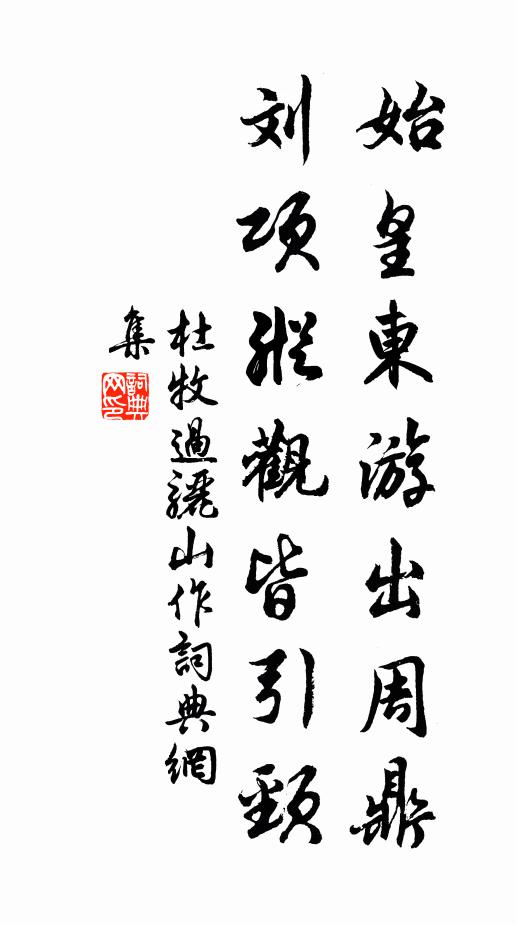 始皇東游出周鼎
刘项縱觀皆引頸
杜牧過驪山作詞典網
集
詞典网印